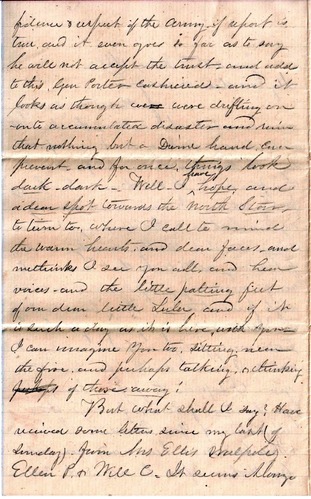 fidence & respect of the Army, if report is
true, and it even goes so far as to say
he will not accept the trust and add
to this, Gen Porter Cashiered - and it
looks as though we were drifting on
- onto accumulated disaster and ruin
that nothing but a Divine hand can
prevent, and for once, things look
dark - dark - Well I have hope, and
a dear spot towards the North Star
to turn to, where I call to mind
the warm hearts, and dear faces, and
methinks I see you all, and hear
voices - and the little patting feet
of our dear little Lula, and if it
is such a day as it is here, with you
I can imagine you too, sitting near
the fire, and perhaps talking, or thinking
of those away!
But what shall I say? Have
recieved some letters since my last (of
Sunday) from Mrs. Ellis
Ellen P. & Will C. It seems